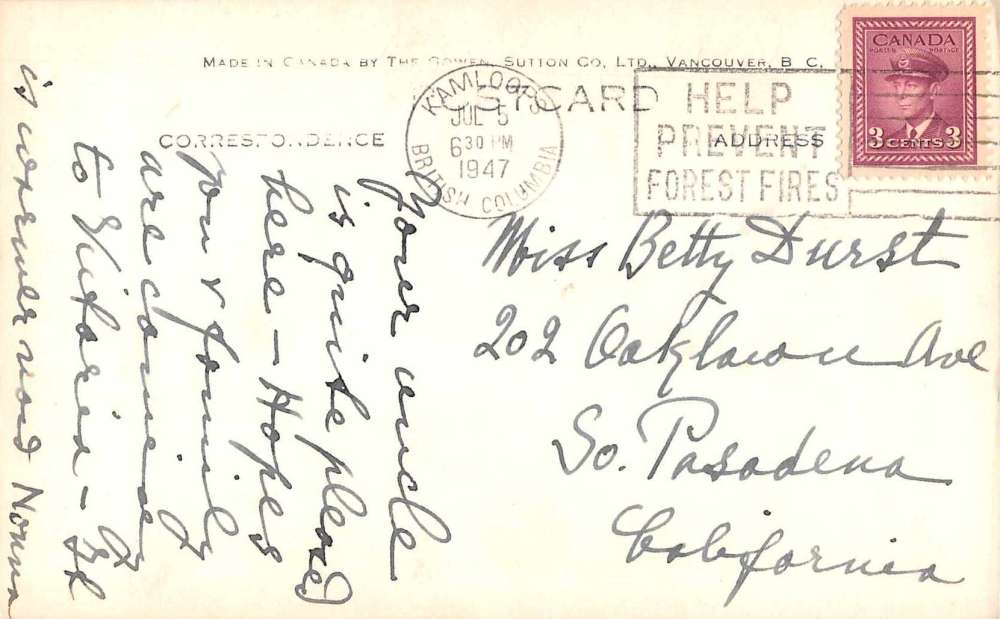 MADE IN CANADA BY THE GOWEN, SUTTON CO, LTD., VANCOUVER, B C,
POSTCARD
CORRESPONDENCE
ADDRESS
KAMLOOPS
JUL 5
630 PM
1947
BRITISH COLUMBIA
HELP
PREVENT
FOREST FIRES
CANADA
POSTES POSTAGE
3 CENTS 3
Your uncle
is quite pleased
here – Hopes
you & family
are coming
to Victoria –
is
Miss Betty Durst
202 Oaklawn Ave
So. Pasadena
California